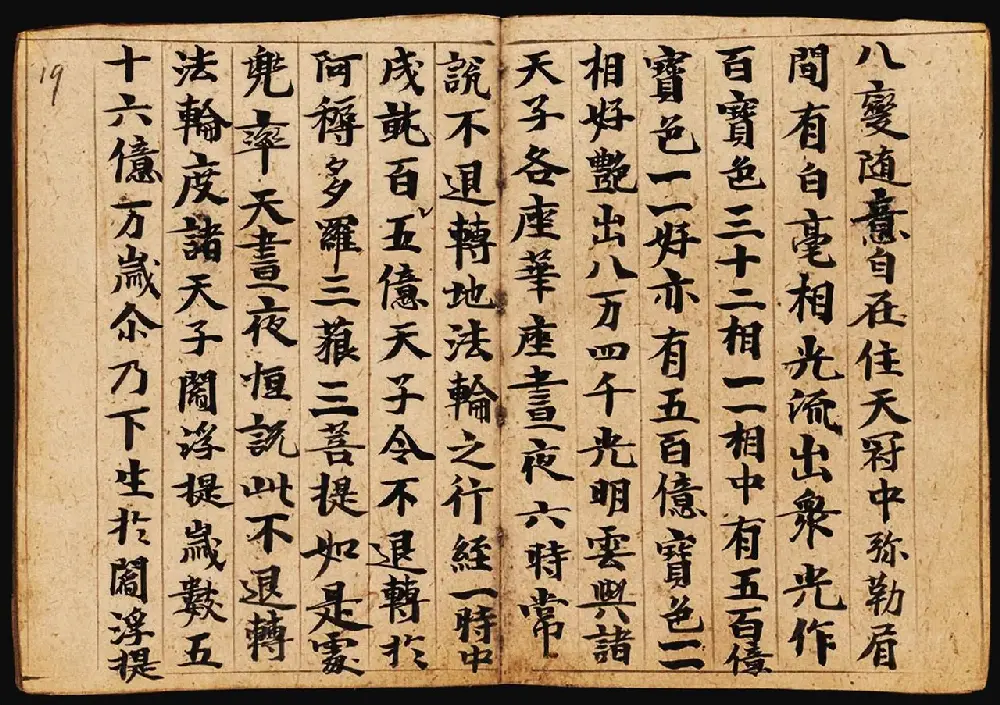 八變随意自在住天冠中弥勒眉
間有白毫相光流出衆光作
百寶色三十二相一一相中有五百億
寶色一一好亦有五百億寶色一一
相好艷出八万四千光明雲與諸
天子各座華座晝夜六時常
說不退轉地法輪之行經一時中
成就百五億天子令不退轉於
阿耨多羅三藐三菩提如是處
兜率天晝夜恒說此不退轉
法輪度諸天子閻浮提歲數五
十六億万歲尒乃下生於閻浮提
19